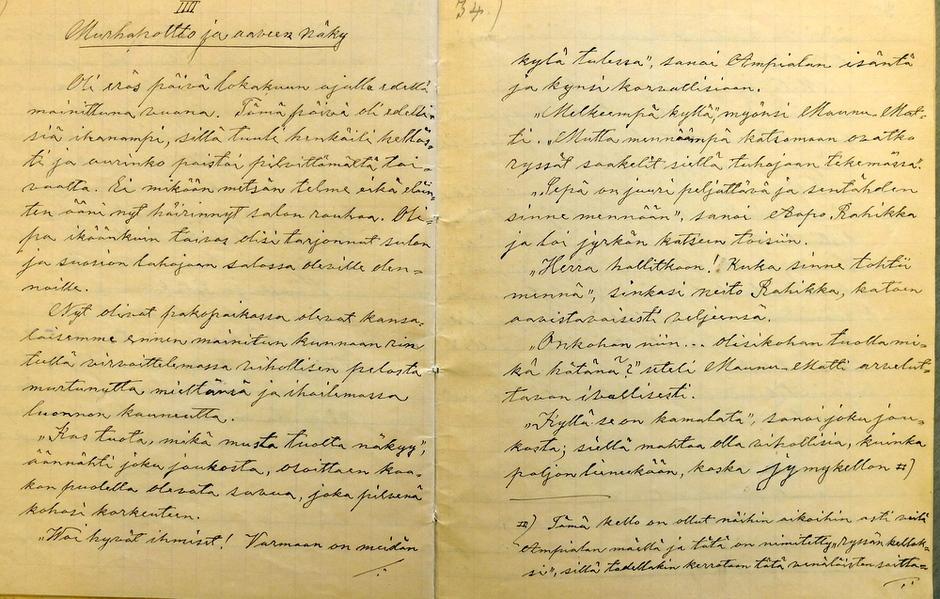 IIII
Murhapoltto ja aaveen näky
Oli eräs päivä lokakuun ajalla edellä
mainittuna vuona. Tämä päivä oli edelli-
siä ihanampi, sillä tuuli henkäili hetkit-
ti ja aurinko paistoi pilvittämältä tai-
vaalta. Ei mikään metsän telme eikä eläin-
ten ääni nyt häirinnyt salon rauhaa. Oli-
pa ikäänkuin taivas olisi tarjonnut sulon
ja suosion lahojaan salossa oleville olen-
noille.
Nyt olivat pakopaikassa olevat kansa-
laisemme ennen mainitun kunnaan rin
teellä virvoittelemassa vihollisen pelosta
murtunutta mieltänsä ja ihailemassa
luonnon kauneutta.
"Kas tuota, mikä musta tuolta näkyy",
äännähti joku joukosta, osoittaen kaa-
kon puolella olevata savua, joka pilvenä
kohosi korkeuteen.
"Woi hyvät ihmiset! Varmaan on meidän
34.)
kylä tulessa", sanoi Ampialan isäntä
ja kynsi korvallisiaan.
"Melkeempä kyllä", myönsi Maunu-Mat-
ti. "Mutta mennäämpä katsomaan ovatko
ryssät saakelit siellä tuhojaan tekemässä."
"Sepä on juuri peljättävä ja sentähden
sinne mennään", sanoi Aapo Rahikka
ja loi jyrkän katseen toisiin.
"Herra hallitkoon! Kuka sinne tohtii
mennä", sinkasi neito Rahikka, katsoen
aavistavaisesti veljeensä.
"Onkohan niin... olisikohan tuolla mi-
kä hätänä?" uteli Maunu-Matti arvelut-
tavan ivallisesti.
"Kyllä se on kamalata", sanoi joku jou-
kosta; siellä mahtaa olla vihollisia, kuinka
paljon lieneekään, koska jymykellon #)
#) Tämä kello on ollut näihin aikoihin asti vielä
Ampialan mäellä ja tätä on nimitetty "ryssän kellok-
si", sillä todellakin kerrotaan tätä venäläisten soitta-